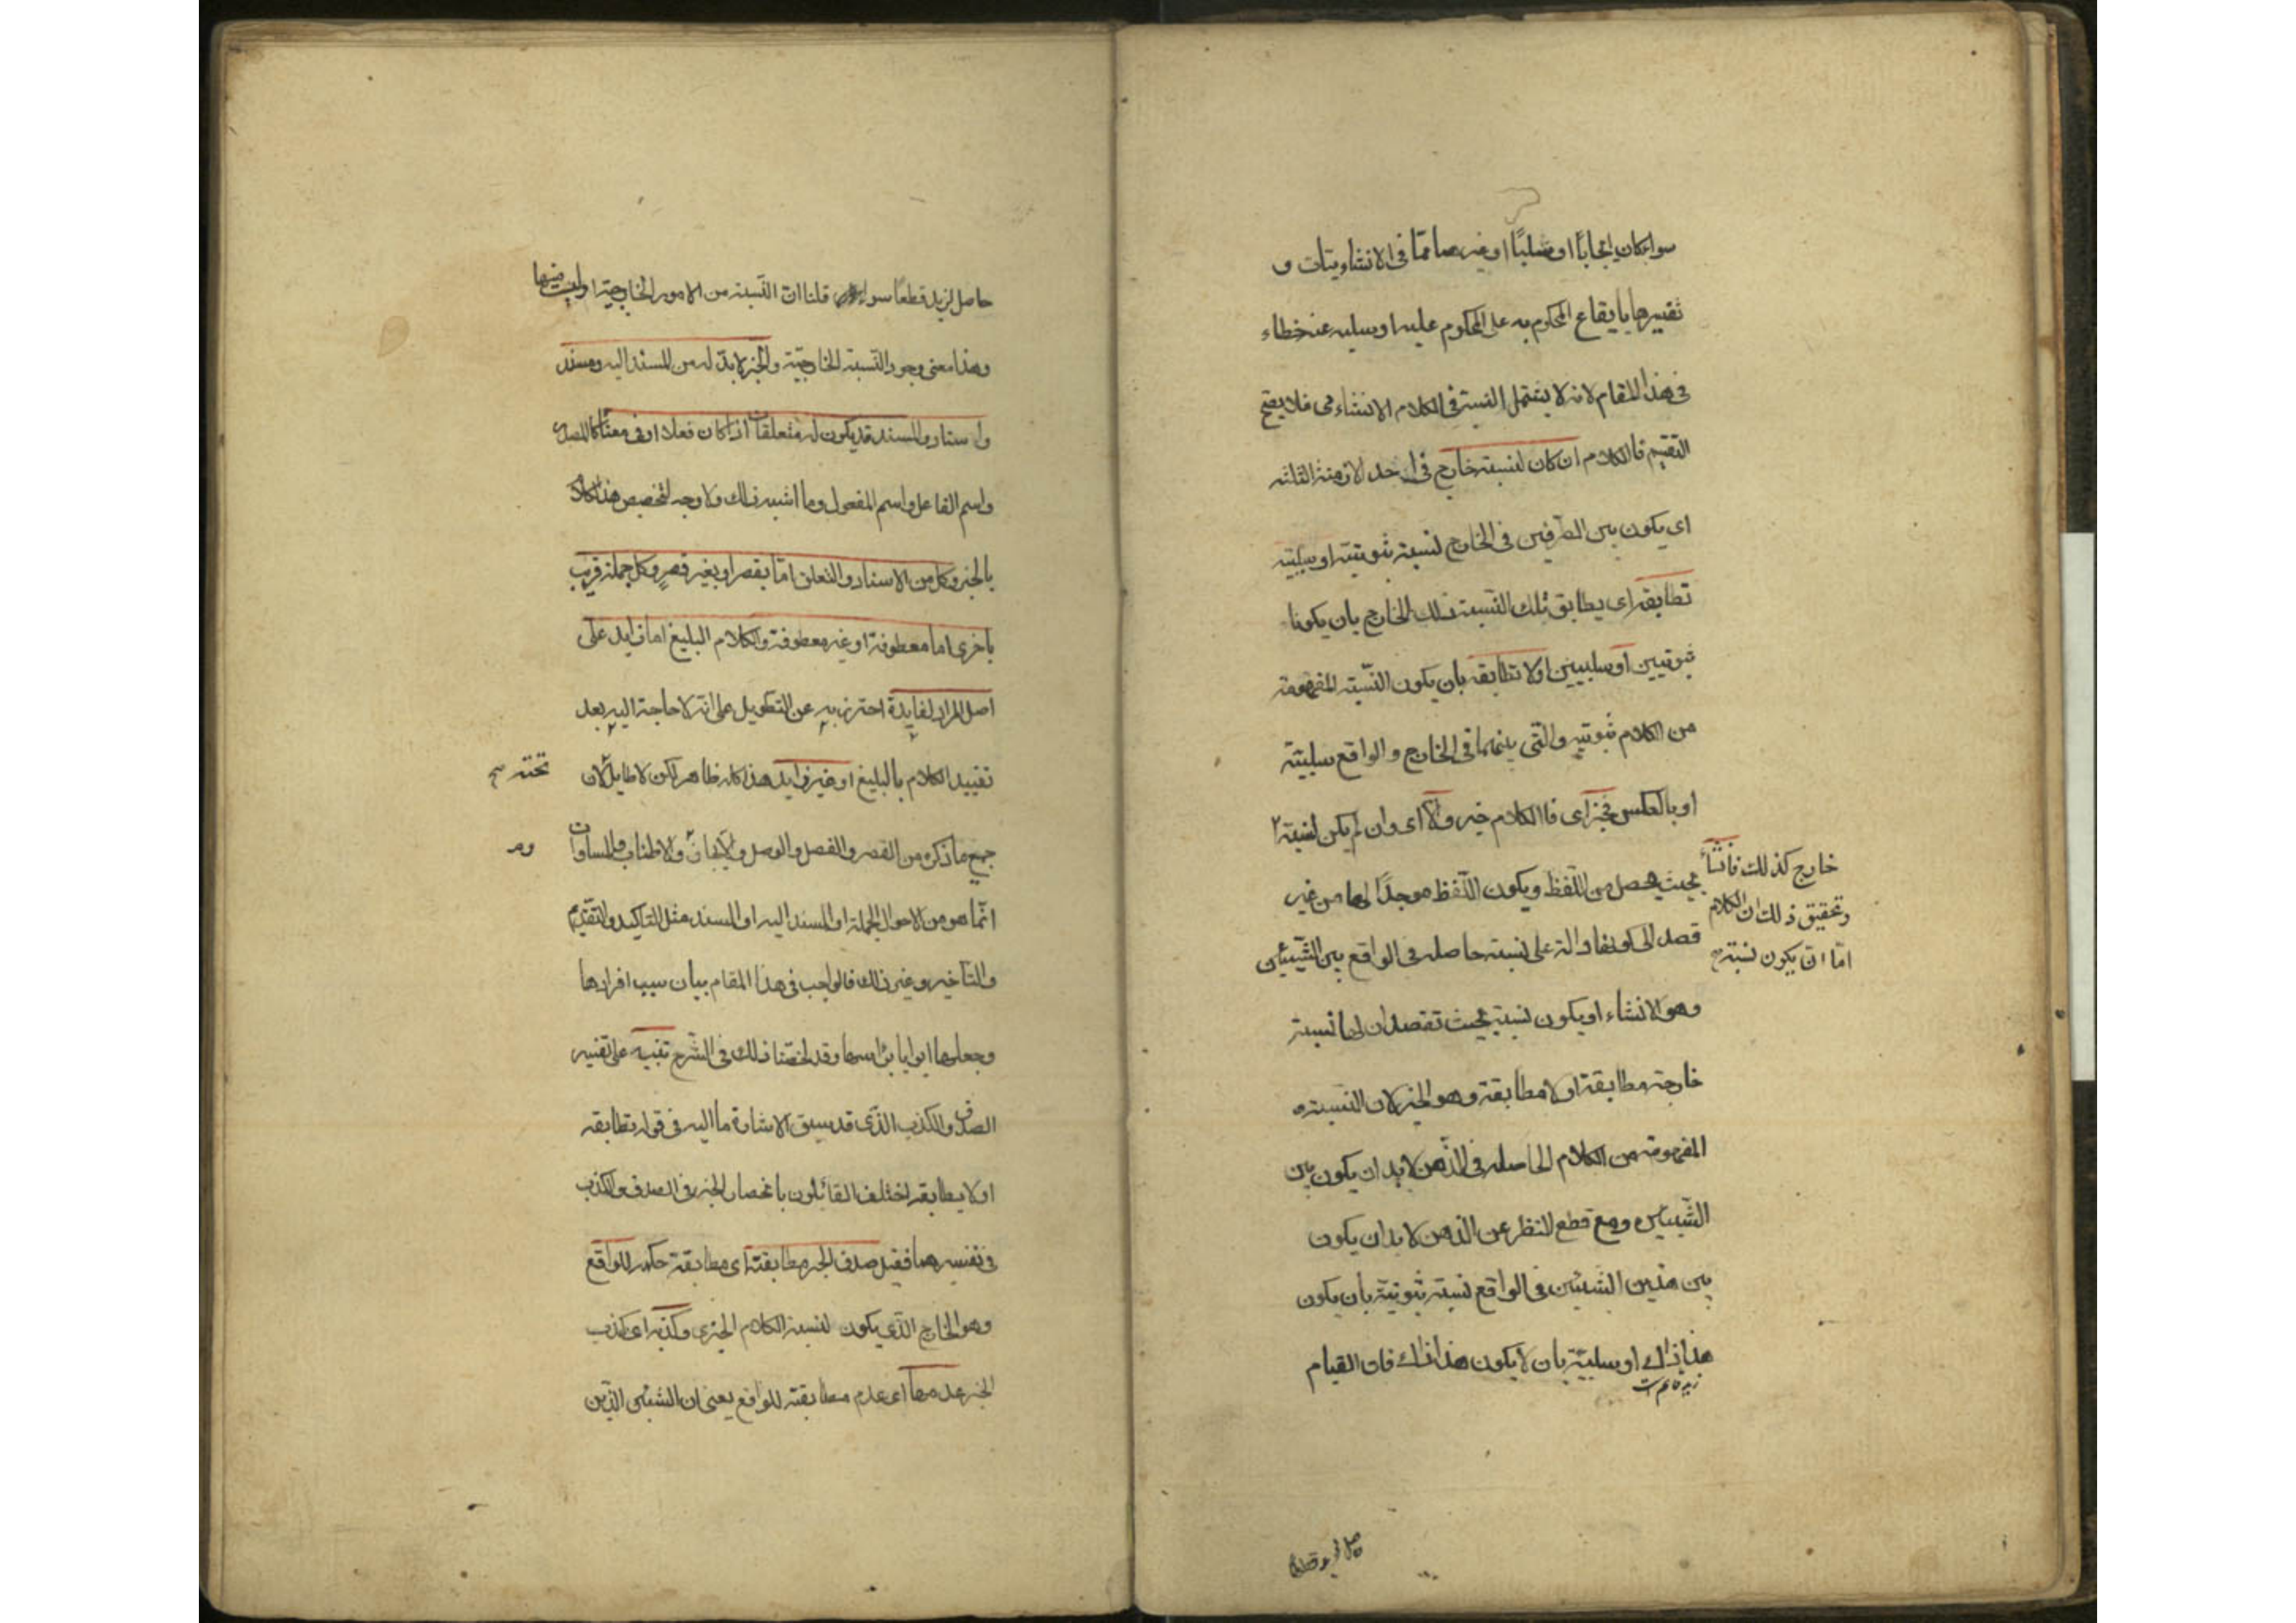 سواء كان ايجابًا او سلبًا او غيرهما مما فى الانشاويتات و
تفسيرها بايقاع المحكوم به على المحكوم عليه او سلبه عنه خطاء
فى هذا المقام لانه لا يشتمل النسبة فى الكلام الانشاءى فلا يصح
التقسيم فالكلام ان كان لنسبته خارج فى احد الازمنة الثلثه
اى يكون بين الطرفين فى الخارج نسبة ثبوتية او سلبية
تطابقه اى يطابق تلك النسبة ذلك الخارج بان يكونا
ثبوتيين او سلبيين او لا تطابقه بان يكون النسبة المفهومة
من الكلام ثبوتيه والتى بينهما فى الخارج والواقع سلبيّة
او بالعكس فخبر اى فاالكلام خبر والّا اى وان لم يكن لنسبته ٢
خارج كذلك فانشاء
وتحقيق ذلك ان الكلام
امّا ان يكون نسبته
بحيث يحصل من اللّفظ ويكون اللّفظ موجدًا لها من غير
قصد الى كونها دالة على نسبة حاصله فى الواقع بين الشيئين
وهو الانشاء او يكون نسبته بحيث تقصد ان لها نسبة
خارجة مطابقة او لا مطابقة وهو الخبر لان النسبة
المفهومة من الكلام الحاصله فى الذّهن لا بد ان يكون بين
الشّيئين ومع قطع النظر عن الذهن لا بد ان يكون
بين هذين الشيئين فى الواقع نسبة ثبوتيّة بان يكون
هذا ذاك او سلبيّة بان لا يكون هذا ذاك فان القيام
حاصل لزيد قطعًا
حاصل لزيد قطعًا سواء قلنا انّ النّسبة من الامور الخارجيّة او ليست منها
وهذا معنى وجود النّسبة الخارجيّة والخبر لا بدّ له من المسند اليه ومسند
واسناد والمسند قد يكون له متعلقات اذا كان فعلا او فى معناه كالمصدر
واسم الفاعل واسم المفعول وما اشبه ذلك ولا وجه لتخصيص هذا الكلام
بالخبر وكل من الاسناد والتعلق امّا بقصر او بغير قصر وكل جملة قرنت
باخرى اما معطوفة او غير معطوفة والكلام البليغ اما زايد على
اصل المراد لفايدة احترز به عن التطويل على انّه لا حاجة اليه بعد
تقييد الكلام بالبليغ او غير زايد هذا كله ظاهر لكن لا طايل لان
تحته صح
جميع ما ذكره من القصر والفصل والوصل والايجاز والاطناب والمساواة
انّما هو من الاحوال الجملة او المسند اليه او المسند مثل التاكيد والتقديم
والتاخير وغير ذلك فالواجب فى هذا المقام بيان سبب افرادها
وجعلها ابوابا برأسها وقد لخّصنا ذلك فى الشّرح تنبيه على تفسير
الصدق والكذب الذّى قد سبق الاشارة ما اليه فى قوله تطابقه
او لا يطابقه اختلف القائلون بانحصار الخبر فى الصدق والكذب
فى تفسيرهما فقيل صدق الخبر مطابقته اى مطابقة حكمه للواقع
وهو الخارج الّذى يكون لنسبة الكلام الخبرى وكذبه اى كذب
الخبر عدمها اى عدم مطابقته للواقع يعنى ان الشيئين الّذين